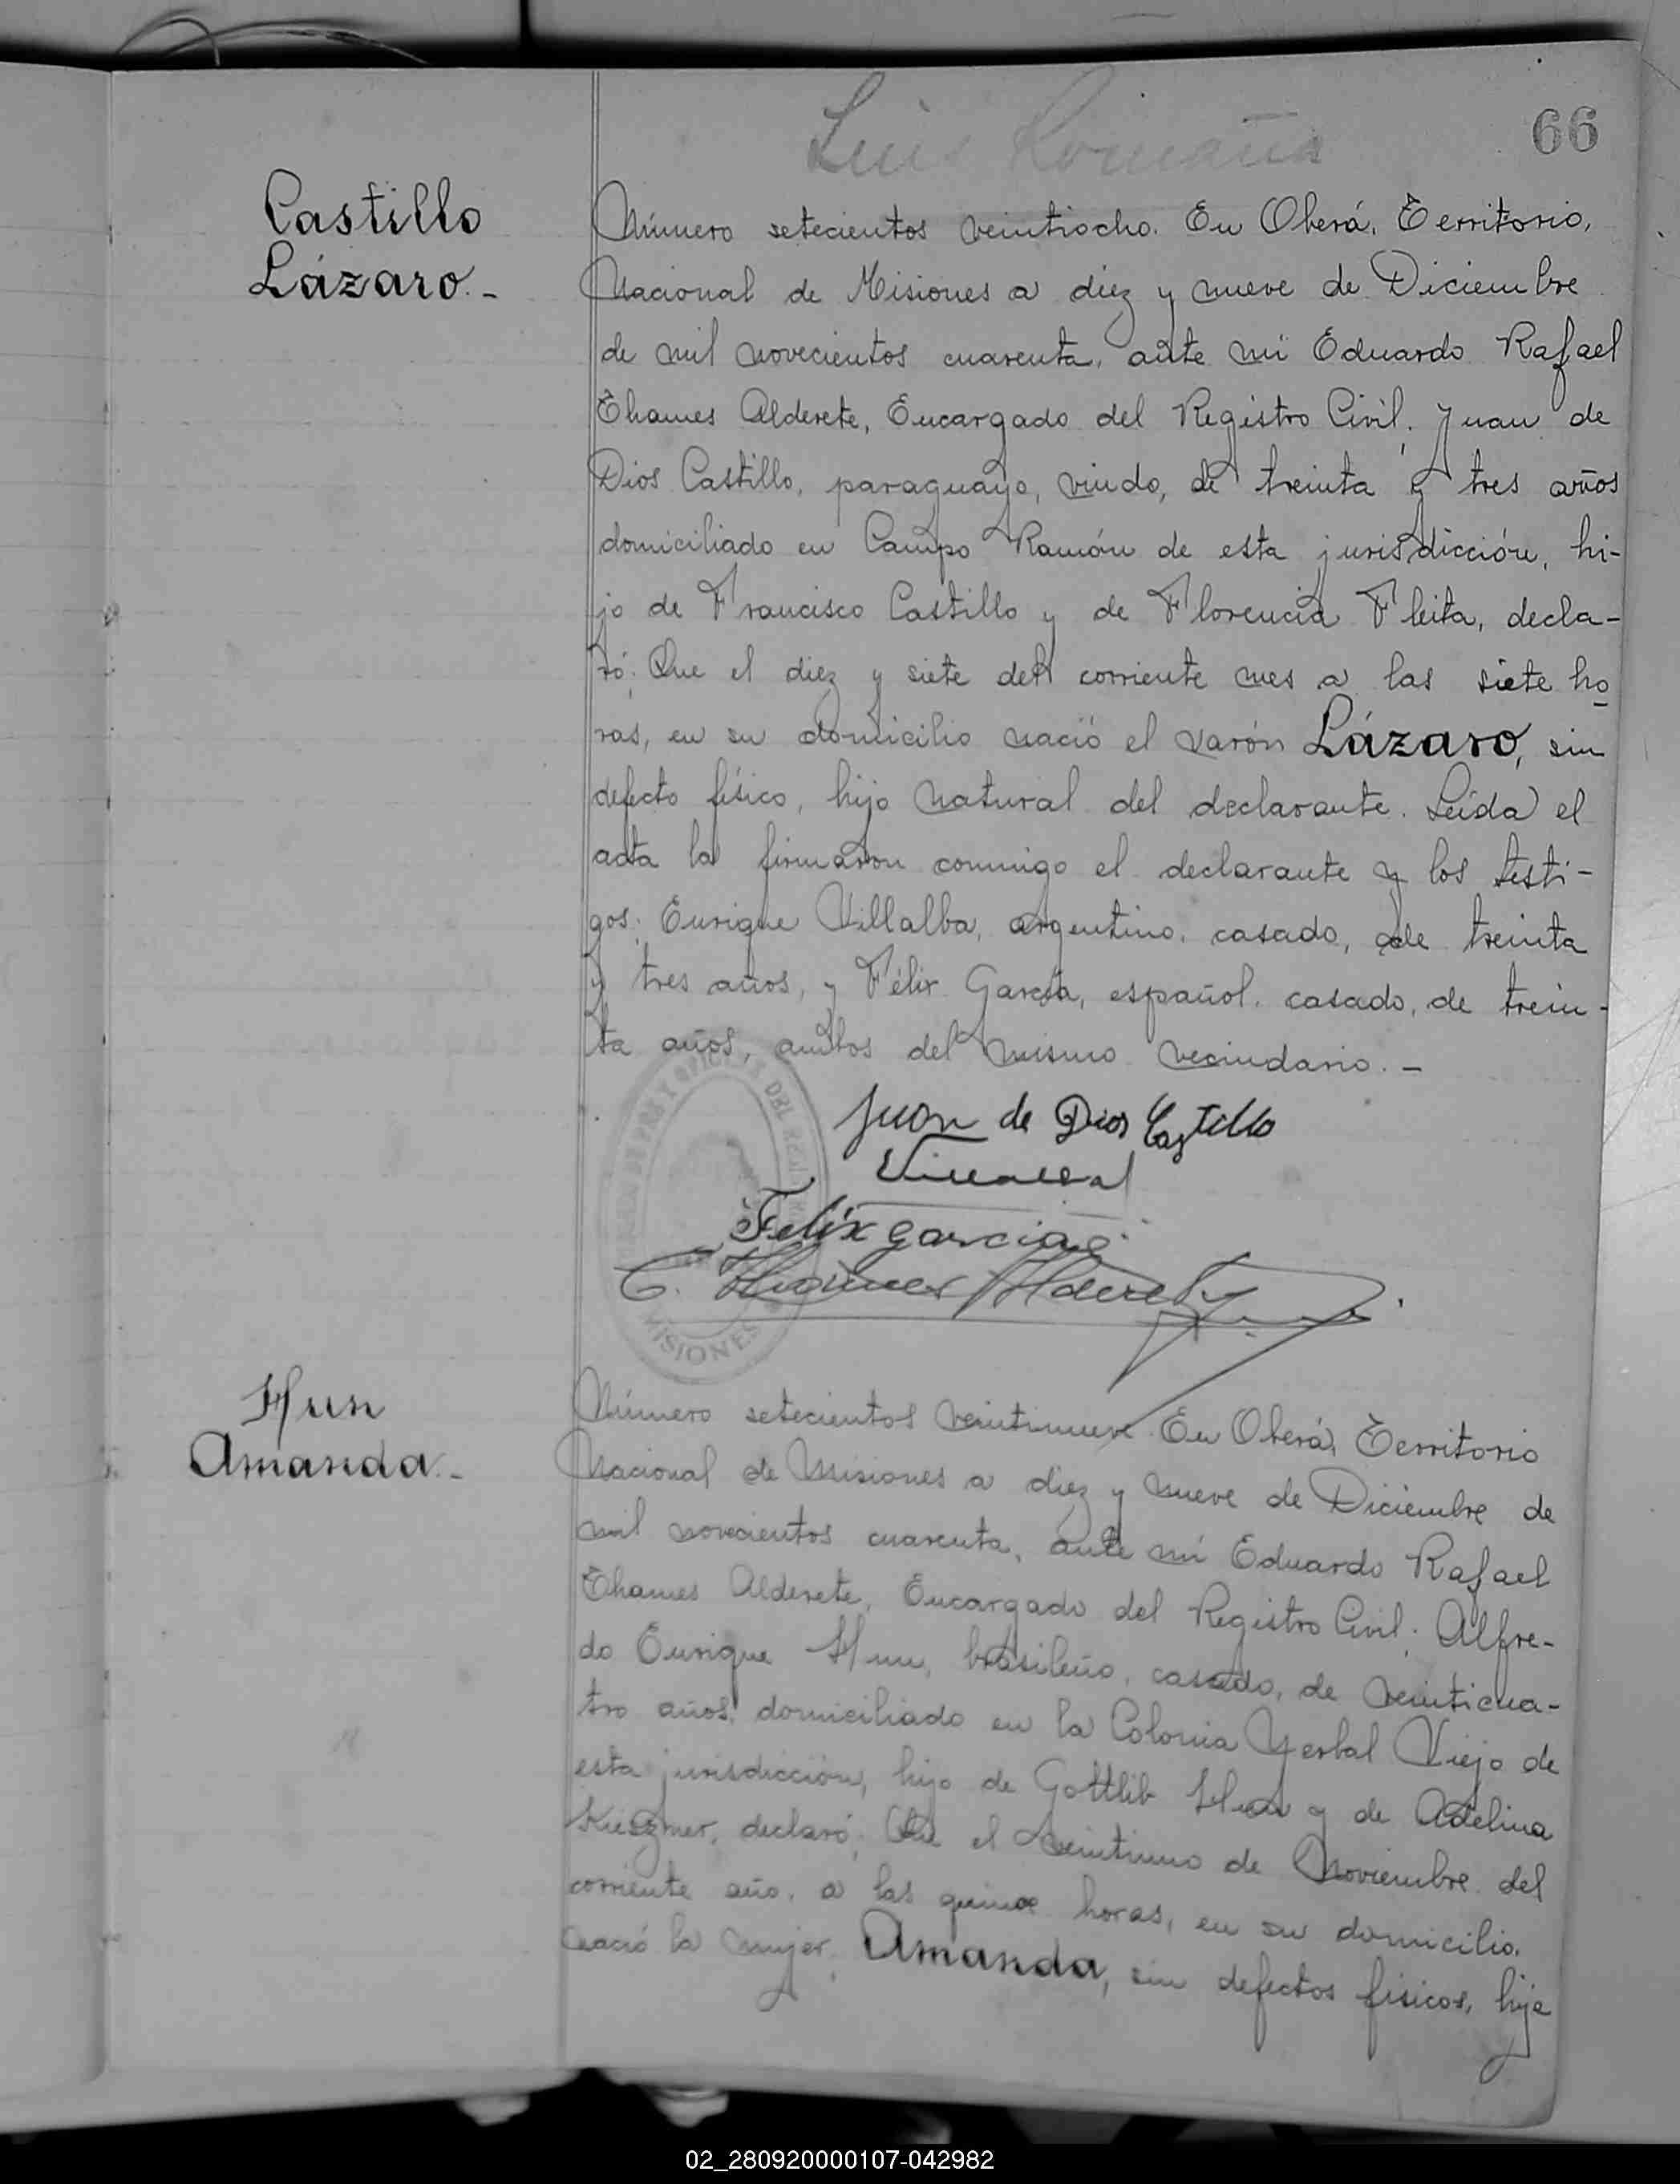 Luis Romaña
66
Castillo
Lázaro.-
Número setecientos veintiocho. En Oberá, Territorio,
Nacional de Misiones a diez y nueve de Diciembre
de mil novecientos cuarenta, ante mi Eduardo Rafael
Thames Alderete, Encargado del Registro Civil; Juan de
Dios Castillo, paraguayo, viudo, de treinta y tres años
domiciliado en Campo Ramón de esta jurisdicción, hi-
jo de Francisco Castillo y de Florencia Fleita, decla-
ró: Que el diez y siete del corriente mes a las siete ho
ras, en su domicilio nació el varón Lázaro, sin
defecto físico, hijo natural del declarante. Leída el
acta la firmaron conmigo el declarante y los testi-
gos: Enrique Villalba, argentino, casado, de treinta
y tres años, y Félix García, español, casado, de trein-
ta años, ambos del mismo vecindario.-
Juan de Dios Castillo
Villalba
Felix Garcia
E. Thames Alderete
DEL
MISIONES
Hun
Amanda.-
Número setecientos veintinueve. En Oberá, Territorio
Nacional de Misiones a diez y nueve de Diciembre de
mil novecientos cuarenta, ante mí Eduardo Rafael
Thames Alderete, Encargado del Registro Civil; Alfre-
do Enrique Hun, brasileño, casado, de veinticua-
tro años, domiciliado en la Colonia Yerbal Viejo de
esta jurisdicción, hijo de Gottlib Hun y de Adelina
declaró: Que el veintiuno de Noviembre del
corriente año, a las quince horas, en su domicilio,
nació la mujer, Amanda, sin defectos físicos, hija
02_280920000107-042982